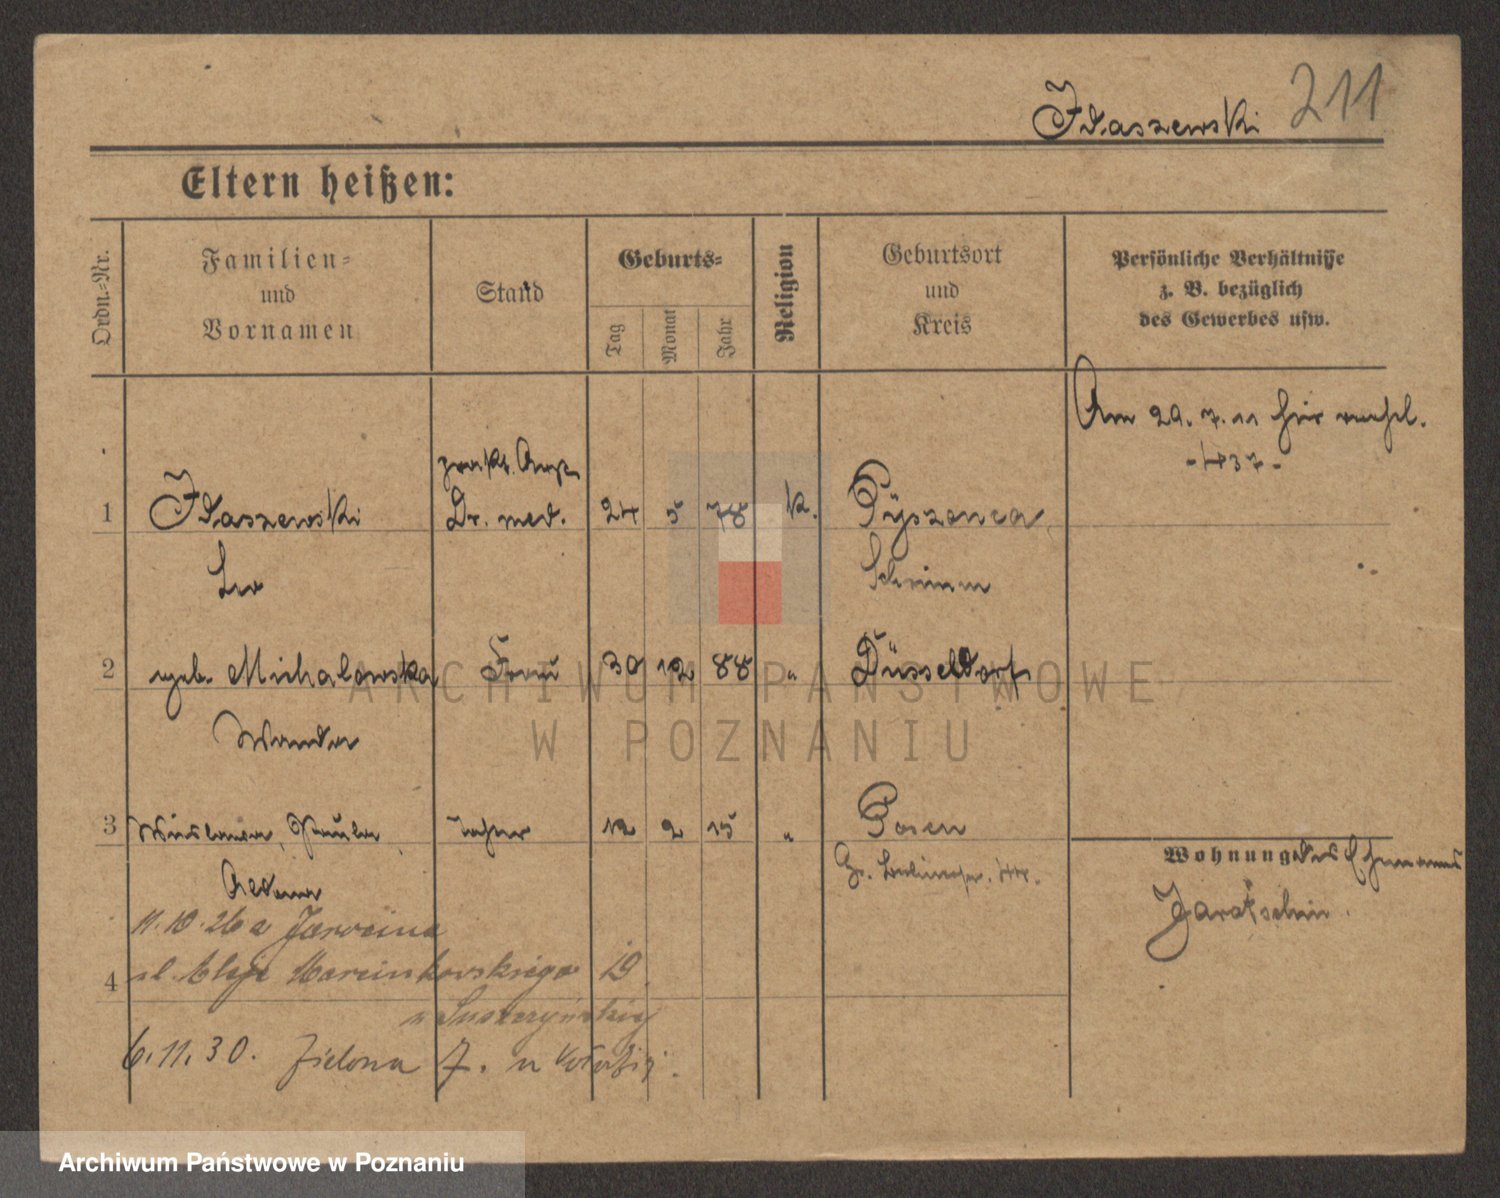 Idaszewski 211
Eltern heißen:
Ordn.-Nr.
Familien-
und
Vornamen
Stand
Geburts-
Tag
Monat
Jahr
Religion
Geburtsort
und
Kreis
Persönliche Verhältnisse
z. B. bezüglich
des Gewerbes usw.
Am 29. 7. 11 hier verehel.
prakt. Arzt
1 Idaszewski Dr. med. 24 5 78 k.
Leo Schrimm
2 geb. Michalowska Frau 30 12 88 " Düsseldorf
Wanda
3 Tochter 12 2 15 " Posen
Wohnung des Ehemannes
Jarotschin.
11. 10. 26 z Jarocina
4 ul. Aleje Marcinkowskiego 19
6. 11. 30. Zielona 7. u
ARCHIWUM PAŃSTWOWE
W POZNANIU
Archiwum Państwowe w Poznaniu